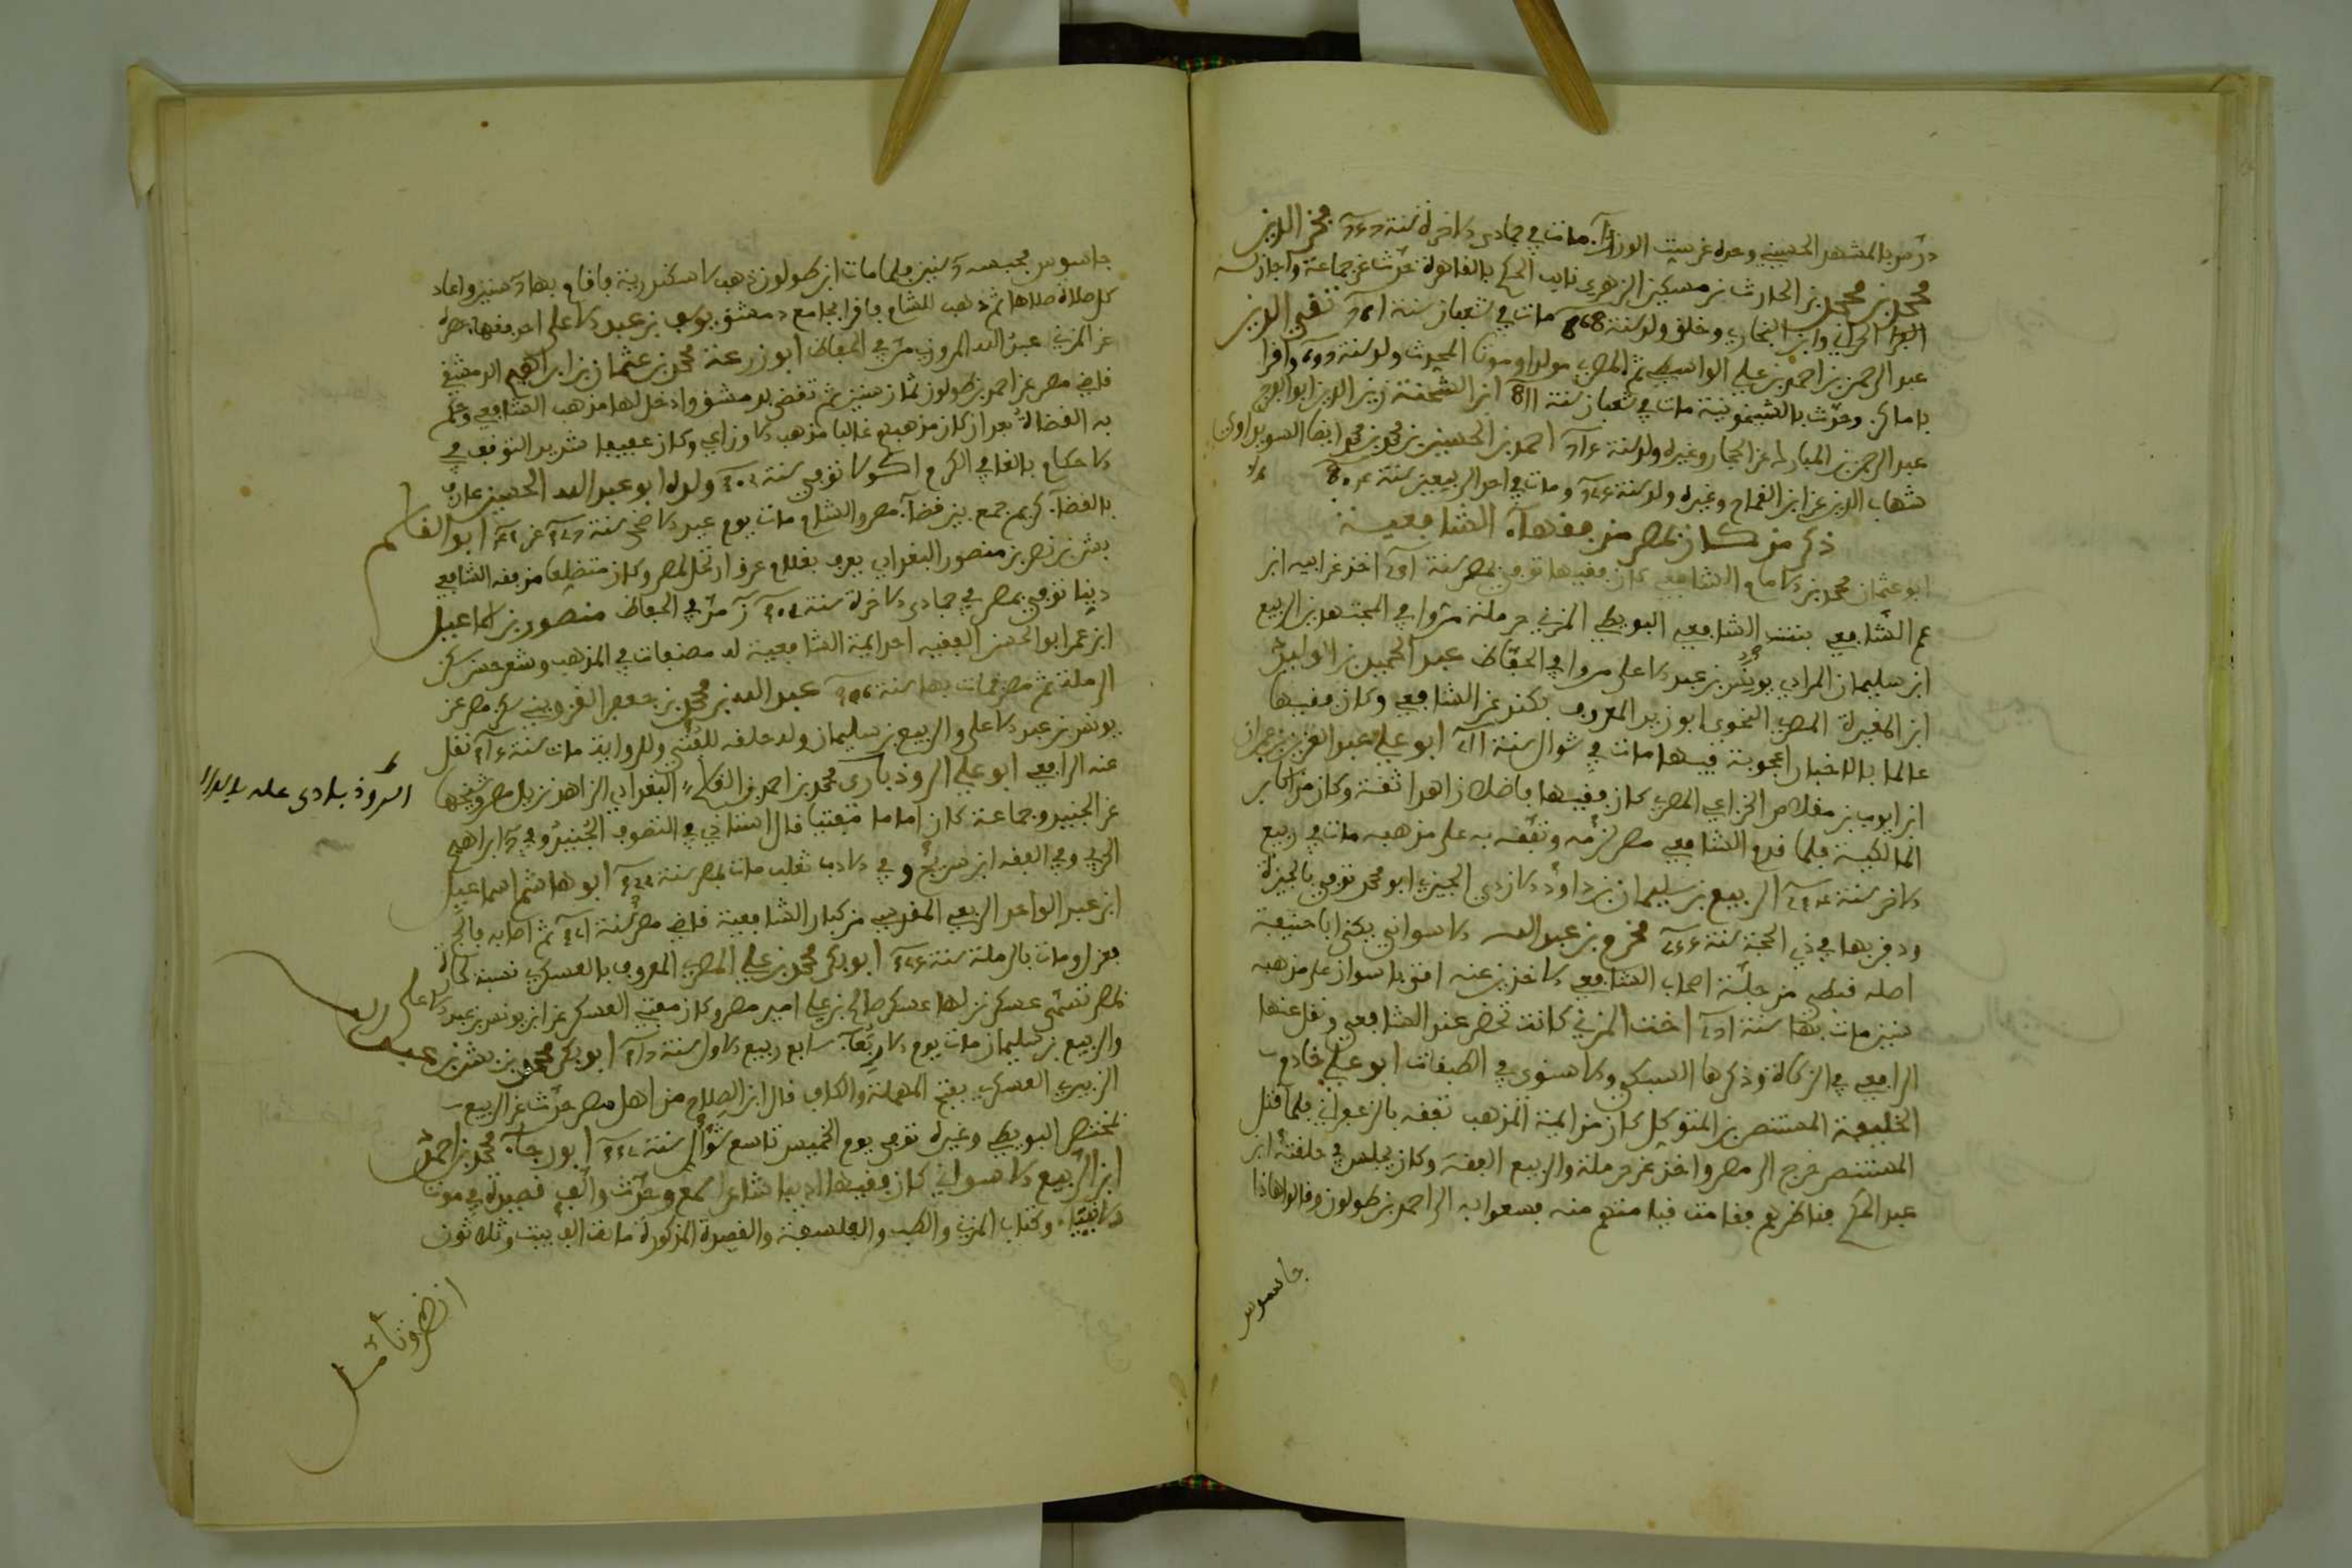 درس بالمشهد الحسيني وحدث عن ست الوزراء مات في جمادى الاخرة سنة فخر الدين
محمد بن محمد بن الحارث بن مسكين الزهري نايب الحكم بالقاهرة حدث عن جماعة واجاز له
العز الحراني وابن البخاري وخلق ولد سنة مات في شعبان سنة تقي الدين
عبد الرحمن بن احمد بن علي الواسطي ثم المصري مولدا وموتا المحدث ولد سنة واقرا
باماكن وحدث بالشيخونية مات في شعبان سنة ابن الشحنة زين الدين ابو الفرج
عبد الرحمن بن المبارك عن الحجار وغيره ولد سنة احمد بن الحسن بن محمد بن محمد ايضا السويداوي
شهاب الدين عن ابن القماح وغيره ولد سنة ومات في احد الربيعين سنة
ذكر من كان بمصر من فقهاء الشافعية
ابو عثمان محمد بن الامام الشافعي كان فقيها توفي بمصر سنة اخذ عن ابيه ابن
عم الشافعي بنت الشافعي البويطي المزني حرملة مروا في المجتهدين الربيع
ابن سليمان المرادي يونس بن عبد الاعلى مروا في الحفاظ عبد الحميد بن الوليد
ابن المغيرة المصري النحوي ابو زيد المعروف بكند عن الشافعي وكان فقيها
عالما بالاخبار اعجوبة فيها مات في شوال سنة ابو علي عبد العزيز بن عمران
ابن ايوب بن مقلاص الخزاعي المصري كان فقيها فاضلا زاهدا ثقة وكان من اكابر
المالكية فلما قدم الشافعي مصر لزمه وتفقه به على مذهبه مات في ربيع
الاخر سنة الربيع بن سليمان بن داود الازدي الجيزي ابو محمد توفي بالجيزة
ودفن بها في ذي الحجة سنة قحزم بن عبد الله الاسواني يكنى ابا حنيفة
اصله قبطي من جلة اصحاب الشافعي الاخذين عنه افتى باسوان على مذهبه
سنين مات بها سنة اخت المزني كانت تحضر عند الشافعي ونقل عنها
الرافعي في الزكاة وذكرها السبكي والاسنوي في الطبقات ابو علي خادم
الخليفة المنتصر بن المتوكل كان من ايمة المذهب تفقه بالزعفراني فلما قتل
المنتصر خرج الى مصر واخذ عن حرملة والربيع الفقه وكان يجلس في حلقة ابن
عبد الحكم فناظرهم فقامت فيامتهم منه فسعوا به الى احمد بن طولون وقالوا هاذا
جاسوس
جاسوس فحبسه سنين فلما مات ابن طولون ذهب لاسكندرية فاقام بها سنين واعاد
كل صلاة صلاها ثم ذهب للشام فاقرا بجامع دمشق يوسف بن عبد الاعلى احد فقهاء مصر
عن المزني عبد الله المروزي مر في الحفاظ ابو زرعة محمد بن عثمان بن ابراهيم الدمشقي
قاضي مصر عن احمد بن طولون ثمان سنين ثم تقضى بدمشق وادخل لها مذهب الشافعي وحكم
به القضاة بعد ان كان مذهبهم غالبا مذهب الاوزاعي وكان عفيفا شديد التوقف في
الاحكام بالغا في الكرم اكولا توفي سنة ولده ابو عبد الله الحسين عارف
بالقضاء كريم جمع بين قضاء مصر والشام مات يوم عيد الاضحى سنة عن ابو القاسم
بشر بن نصر بن منصور البغدادي يعرف بغلام عرق ارتحل لمصر وكان متضلعا من فقه الشافعي
دينا توفي بمصر في جمادى الاخرة سنة مر في الحفاظ منصور بن اسماعيل
ابن عمر ابو الحسن الفقيه احد ايمة الشافعية له مصنفات في المذهب وشعر حسن سكن
الرملة ثم مصر فمات بها سنة عبد الله بن محمد بن جعفر القزويني سكن مصر عن
يونس بن عبد الاعلى والربيع بن سليمان وله حلقة للفتيى وللرواية مات سنة نقل
عنه الرافعي ابو علي الروذباري محمد بن احمد بن القاسم البغدادي الزاهد نزيل مصر وشيخها
الروذبادي
عن الجنيد وجماعة كان اماما مفتيا قال استاذي في التصوف الجنيد وفي ابراهيم
الحربي وفي الفقه ابن سريج وفي الادب ثعلب مات بمصر سنة ابو هاشم اسماعيل
ابن عبد الواحد الربعي المقدسي من كبار الشافعية قاضي مصر سنة ثم اصابه فالج
فعزل ومات بالرملة سنة ابو بكر محمد بن علي المصري المعروف بالعسكري نسبة لحارة
بمصر تسمى عسكر نزلها عسكر صالح بن علي امير مصر وكان مفتي العسكر عن ابن يونس بن عبد الاعلى
والربيع بن سليمان مات يوم الاربعاء سابع ربيع الاول سنة ابو بكر محمد بن بشر بن عبد الله
الزبيري العسكري بفتح المهملة والكاف قال ابن الصلاح من اهل مصر حدث عن الربيع
بمختصر البويطي وغيره توفي يوم الخميس تاسع شوال سنة ابو رجاء محمد بن احمد
ابن الربيع الاسواني كان فقيها اديبا شاعرا سمع وحدث والف قصيدة في موت
الانبياء وكتاب المزني والطب والفلسفة والقصيدة المذكورة ماية الف بيت وثلاثون
انظر وتامل